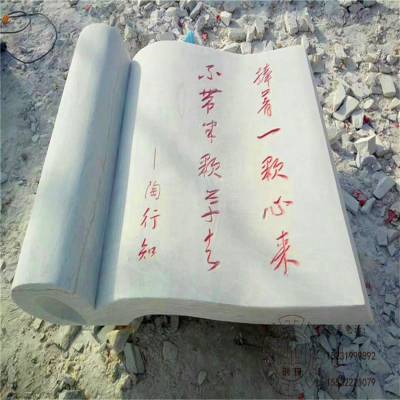 捧着一颗心来
不带半颗草去
—陶行知